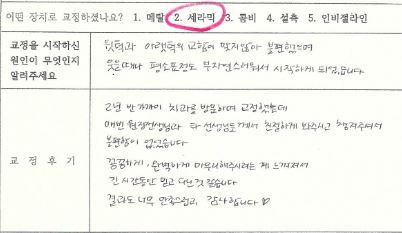 어떤 장치로 교정하셨나요? 1. 메탈 2. 세라믹 3. 콤비 4. 설측 5. 인비절라인
교정을 시작하신
원인이 무엇인지
알려주세요
윗턱과 아랫턱의 교합이 맞지않아 불편했으며
웃을때나 평소표정도 부자연스러워서 시작하게 되었습니다
교 정 후 기
2년 반 가까이 치과를 방문하며 교정했는데
매번 원장선생님과 타 선생님들께서 친절하게 봐주시고 챙겨주셔서
불편함이 없었습니다
꼼꼼하게, 완벽하게 마무리해주시려는 게 느껴져서
긴 시간동안 믿고 다닌 것 같습니다
결과도 너무 만족스럽고, 감사합니다 ♡